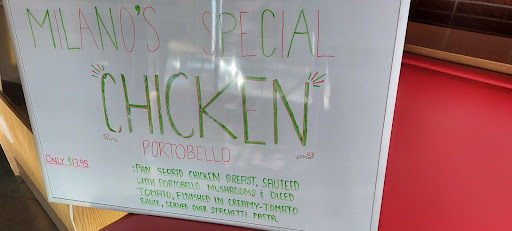 MILANO'S SPECIAL
"CHICKEN"
PORTOBELLO
ONLY $13.95
: PAN SEARD CHICKEN BREAST, SAUTEED
WITH PORTOBELLO MUSHROOMS & DICED
TOMATO, FINISHED IN CREAMY-TOMATO
SAUCE, SERVED OVER SPAGHETTI PASTA.